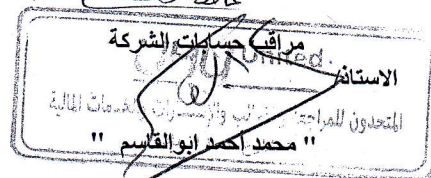 مراقب حسابات الشركة
United
الاستاذ
المتحدون للمراجعة والضرائب والإستشارات والخدمات المالية
" محمد أحمد ابوالقاسم "